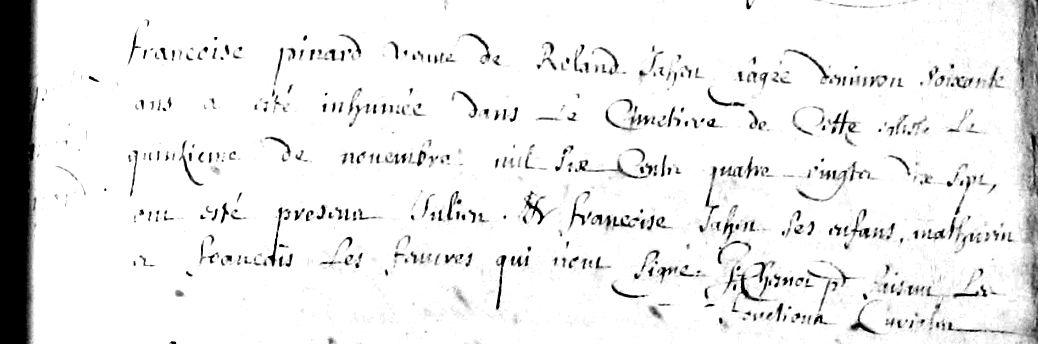 francoise pinard veuve de Roland Jahen aàgée denuiron Soixante
ans a esté inhumée dans Le Cimetiere de Cette eglise Le
quinzieme de novembre mil Six Cents quatre vingts dix sept,
ont esté presens Julien & francoise Jahen Ses enfans, mathurin
et francois Les faueres qui nont Signé. pb faisant Les
fonctions Curiales